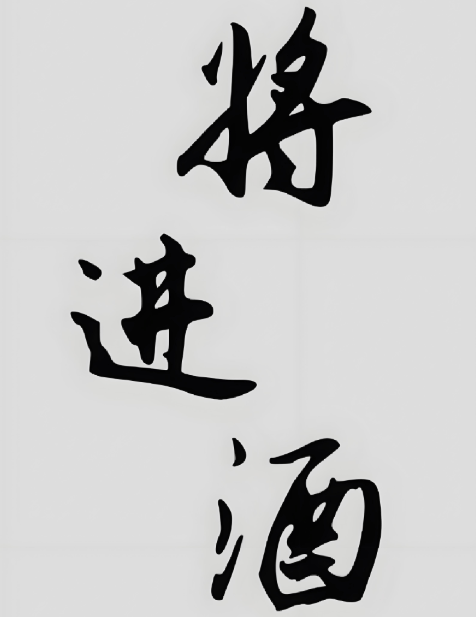 将
进
酒